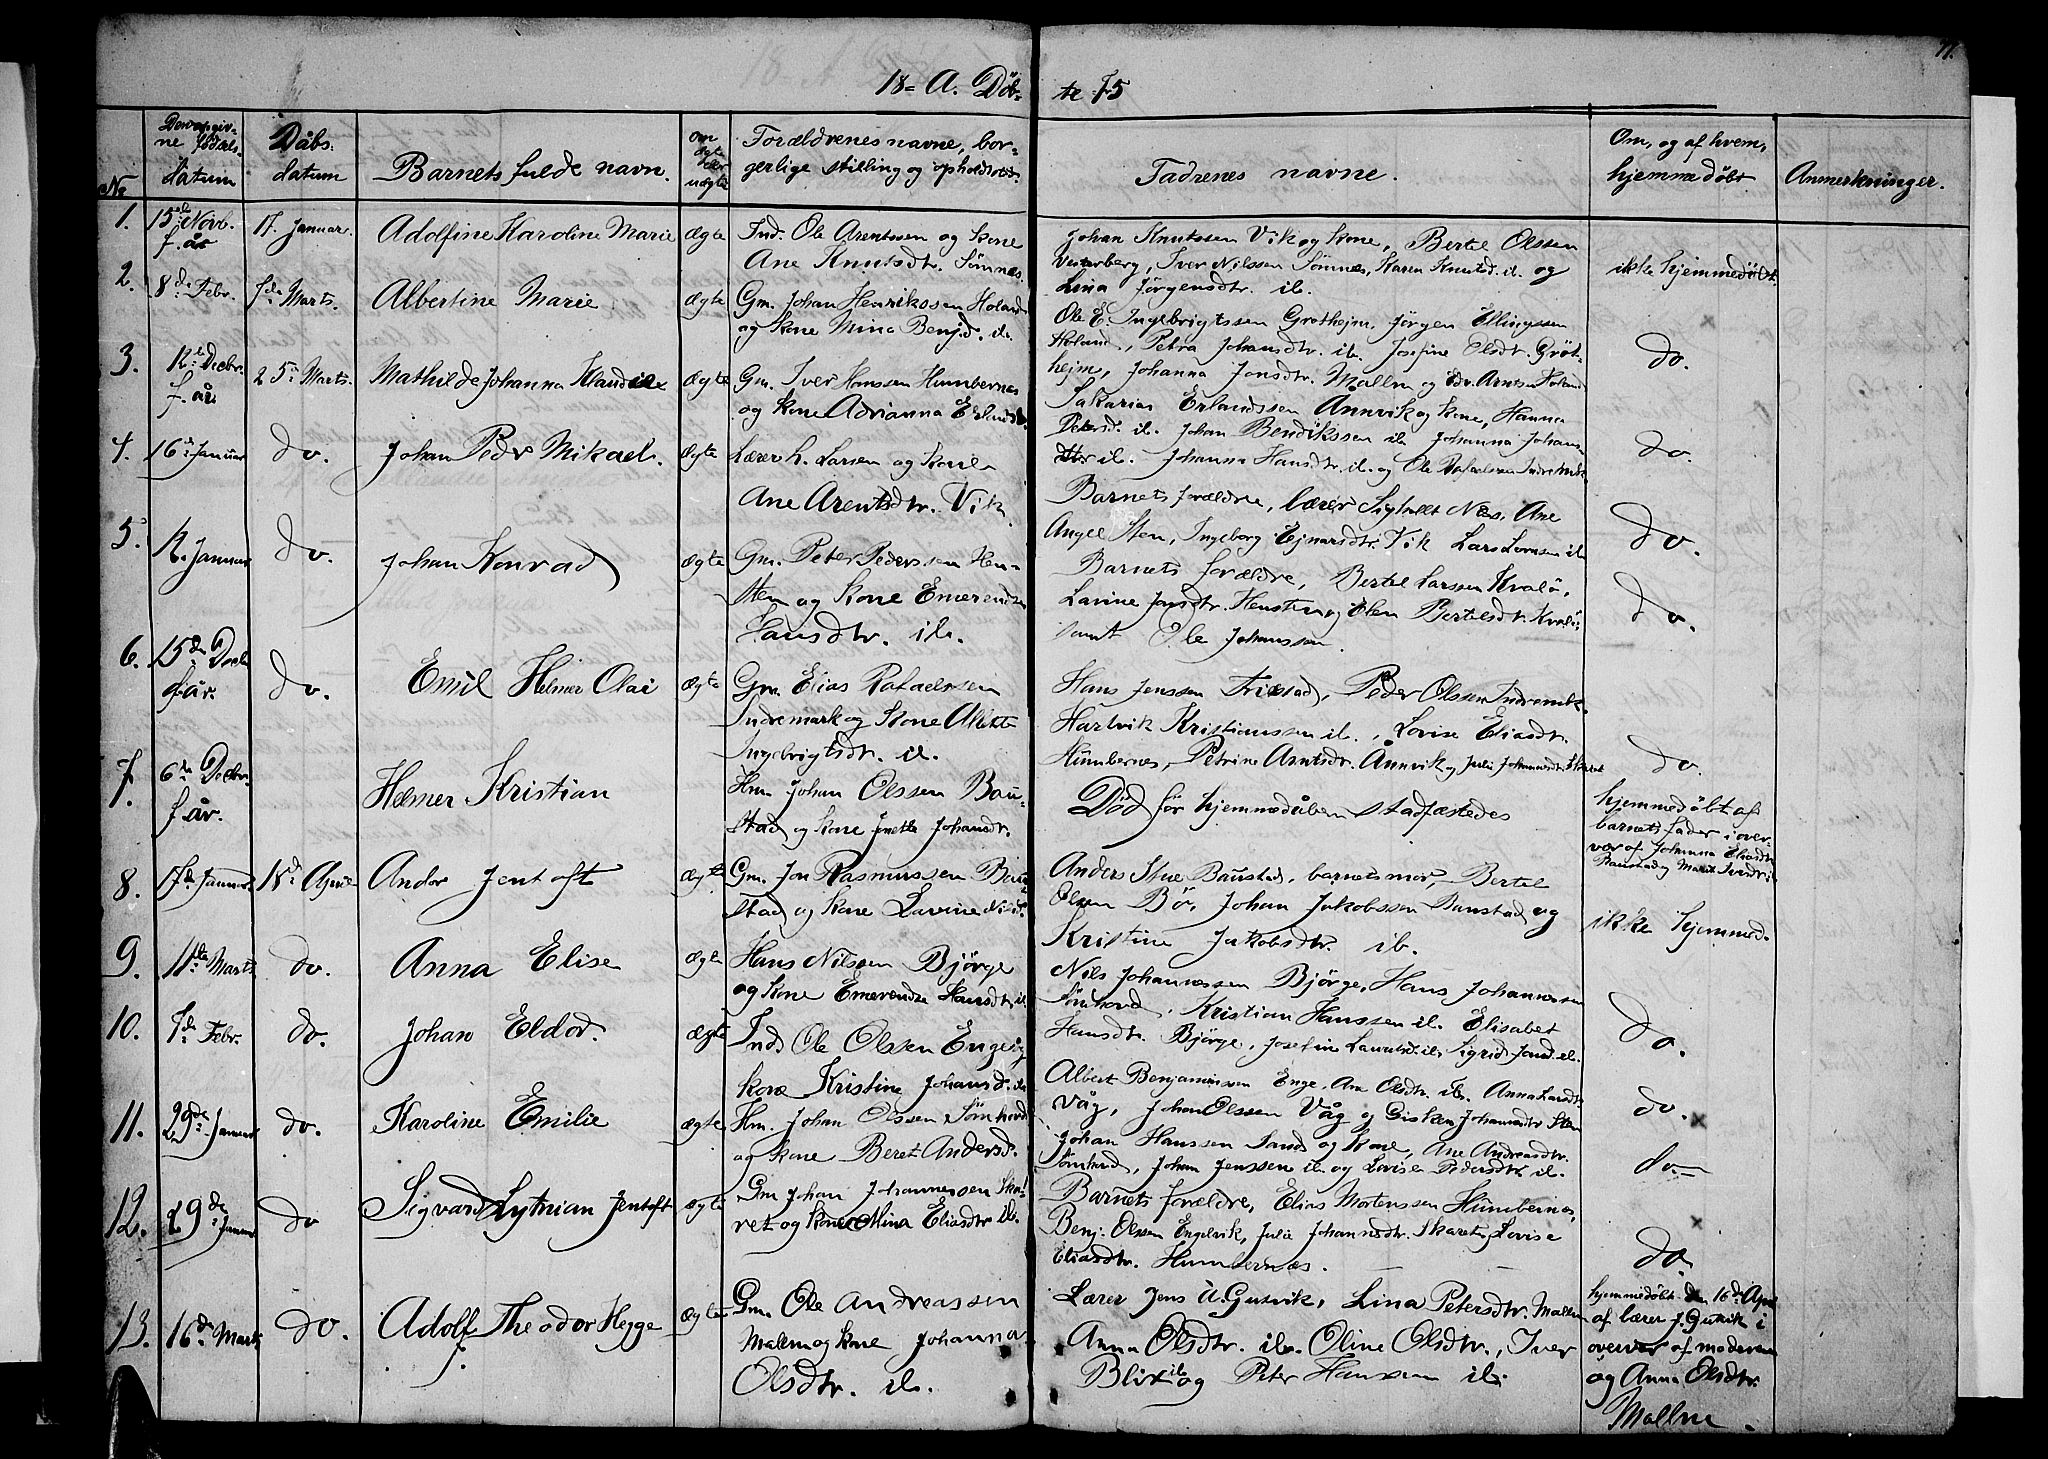 18- A. Döb- te 75
No
Den opgiv-
ne fødsels-
datum
Dåbs-
datum
Barnets fulde navn.
om
ægte
eller
uægte
Forældrenes navne, bor-
gerlige stilling og opholdssted.
Fadrenes navne.
Om, og af hvem,
hjemmedøbt.
Anmerkninger.
1. 15de Novb. f. år
17. Januar.
Adolfine Karoline Marie
ægte
Ind. Ole Arentssen og kone
Ane Knutsdtr. Sömnes.
Johan Knutssen Vik og kone, Bertel Olssen
Vesterberg, Iver Nilssen Sömnes, Karen Knutsd. ib. og
Lina Jörgensdtr. ib.
ikke hjemmedöbt.
2. 8de Febr.
Marts.
Albertine Marie
ægte
Gm. Johan Henrikssen Holand
og kone Mina Benjd. ib.
Ole E. Ingebrigtssen Grøthejm, Jörgen Ellingssen
Holand, Petra Johansdtr. ib. Josefine Olsdtr. Gröt-
hejm, Johanna Jonsdtr. Mallm og Edv. Arntsen Holand
do.
3. 12te Decbr. f. år
25. Marts.
Mathilde Johanna Klaudie
ægte
Gm. Iver Hanssen Humbernes
og kone Adrianna Erlandsd.
Sakarias Erlandssen Annvik og kone, Hanna
Petersd. ib. Johan Bendikssen ib. Johanna Johans-
dtr ib. Johanna Hansdtr. ib. og Ole Rafaelsen Indremark
do.
4. 16de Januar
do.
Johan Peder Mikael.
ægte
Lærer L. Larsen og kone
Ane Arentsdtr. Vik.
Barnets forældre, lærer Næs, Ane
Angel Stem, Ingeborg Ejnarsdtr. Vik Lars ib.
do.
5. 12. Januar
do.
Johan Konrad
ægte
Gm. Peter Pederssen Hen-
sten og kone Emerendse
Hansdtr. ib.
Barnets forældre, Bertel Larssen Kvalö,
Lavine Jonsdtr. Hensten og Elen Bertelsdtr. Kvalö,
samt Ole Johanssen.
do.
6. 15de Decbr f. år.
do.
Emil Helmer Olai
ægte
Gm. Elias Rafaelssen
Indremark og kone Alette
Ingebrigtsdtr. ib.
Hans Jenssen Peder Olssen Indremk.
Hartvik Kristianssen ib., Lovise Eliasdtr.
Humbernes, Petrine Arntsdtr. Ånnvik og Julie Johannesdtr.
do.
7. 6te Decbr. f. år.
Helmer Kristian
Hm. Johan Olssen Bau-
stad og kone Johansdtr.
Död før hjemmedåben stadfæstedes
hjemmedöbt af
barnets fader i over-
vær af Johanna Eliasdtr
Baustad og Marit
8. 17de Januar
18de April
Andor Jentoft
ægte
Gm. Jon Rasmussen Bau-
stad og kone Lavine Nilsd.
Anders Baustad, barnets mor, Bertel
Olsen Bö, Johan Jakobssen Baustad og
Kristine Jakobsdtr. ib.
ikke hjemmed.
9. 11te Marts
do.
Anna Elise
ægte
Hans Nilssen Björge
og kone Emerendse Hansdtr. ib.
Nils Johannessen Björge, Hans Johannessen
Sömhovd, Kristian Hanssen ib. Elisabet
Hansdtr. Björge, Josefine ib. Sigrid Jonsd. ib.
do.
10. 7de Febr.
do.
Johan Eldor.
ægte
Ind. Ole Olssen Enge og
kone Kristine Johansd. ib.
Albert Benjaminssen Enge, Ane Olsdtr. ib. Anna
Våg, Johan Olssen Våg og Gisken Johannesdtr.
do.
11. 29de Januar
do.
Karoline Emilie
ægte
Hm. Johan Olssen Sömhovd
og kone Beret Andersd.
Johan Hanssen Sand og kone, Ane Andreasdtr.
Sömhovd, Johan Jenssen ib. og Lovise Pedersdtr. ib.
do
12. 29de Januar
do
Sigvard Jentoft
ægte
Gm Johan Johannessen Ska-
ret og kone Mina Eliasdtr ib.
Barnets forældre, Elias Mortenssen Humbernes,
Benj. Olssen Engelvik, Julie Johannsdtr. Skaret og Lovise
Eliasdtr. Humbernes.
do
13. 16de Marts
do.
Adolf Theodor Hegge
ægte
Gm. Ole Andreassen
Mallm og kone Johanna
Olsdtr. ib.
Lærer Jens U. Gutvik, Lina Petersdtr. Mallm
Anna Olsdtr. ib. Oline Olsdtr., Iver
Blix ib og Peter Hanssen ib.
hjemmedöbt 16de Apr
af lærer J. Gutvik i
overvær af moderen
og Anna Olsdtr.
Mallm.